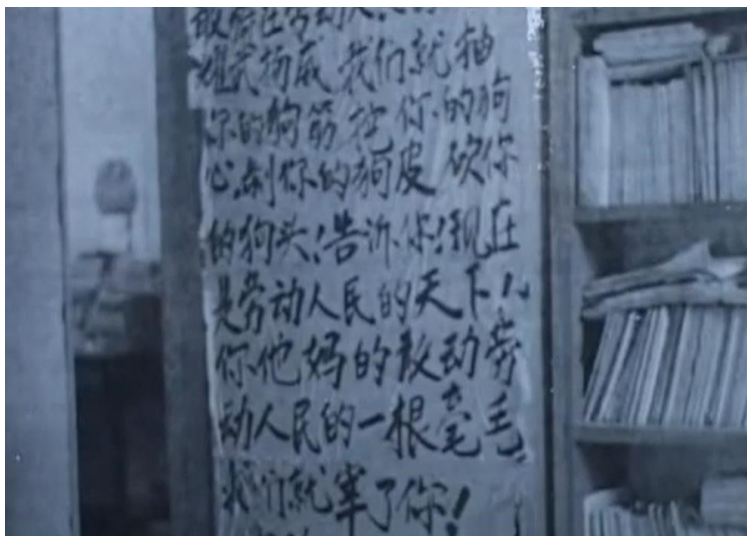 敢骑在劳动人
耀武扬威 我们就抽
你的狗筋 挖你的狗
心,剥你的狗皮 砍你
的狗头!告诉你!现在
是劳动人民的天下!
你他妈的敢动劳
动人民的一根毫毛
我们就宰了你!